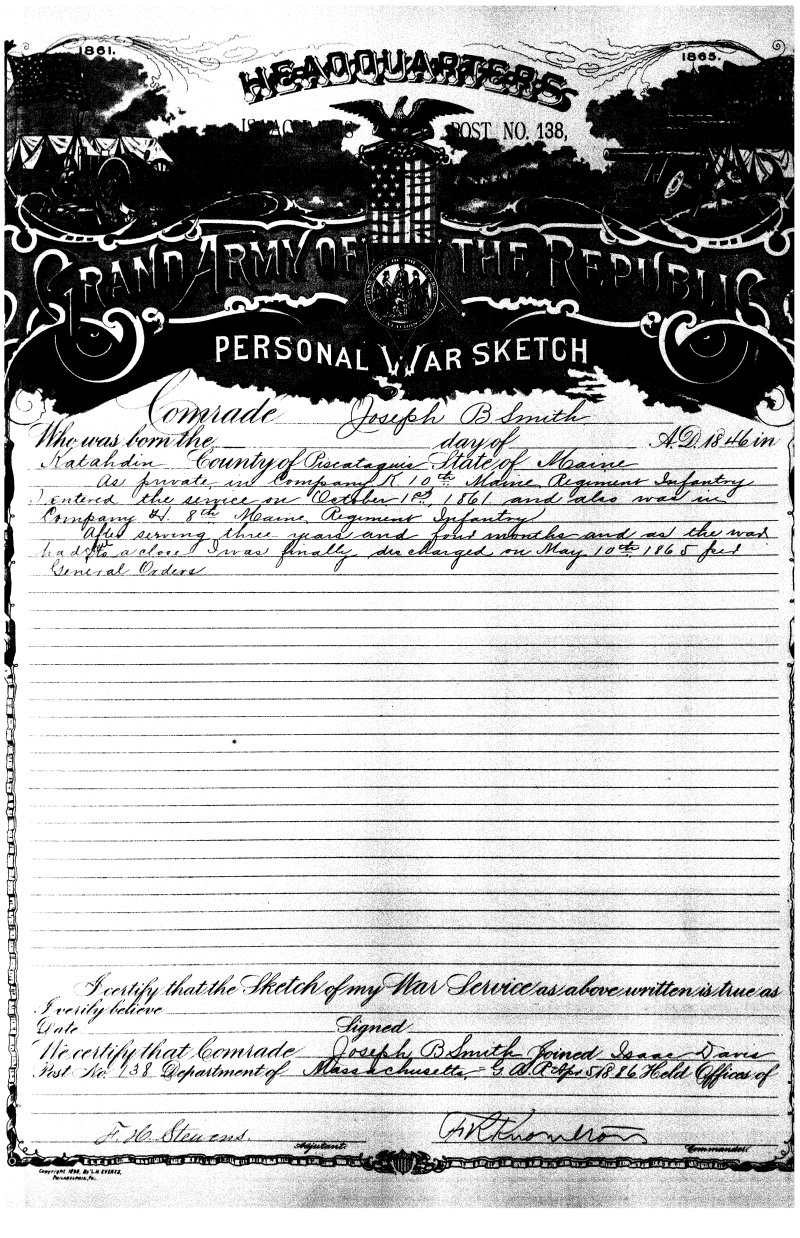 1861.
1865.
HEADQUARTERS
POST NO. 138,
GRAND ARMY OF THE REPUBLIC
PERSONAL WAR SKETCH
Comrade Joseph B Smith
Who was born the day of A.D. 1846 in
Katahdin County of Piscataquis State of Maine
As private in Company K 10th Maine Regiment Infantry
I entered the service on October 1st 1861 and also was in
Company H. 8th Maine Regiment Infantry
After serving three years and four months and as the war
had to a close I was finally discharged on May 10th 1865 per
General Orders
I certify that the Sketch of my War Service as above written is true as
I verily believe
Date Signed
We certify that Comrade Joseph B Smith Joined Isaac Davis
Post No. 138 Department of Massachusetts G.A.R. Apr 5 1886 Held Offices of
F. H. Stevens.
Adjutant.
Commander.
Copyright By L.H. EVERTS,
PHILADELPHIA, PA.